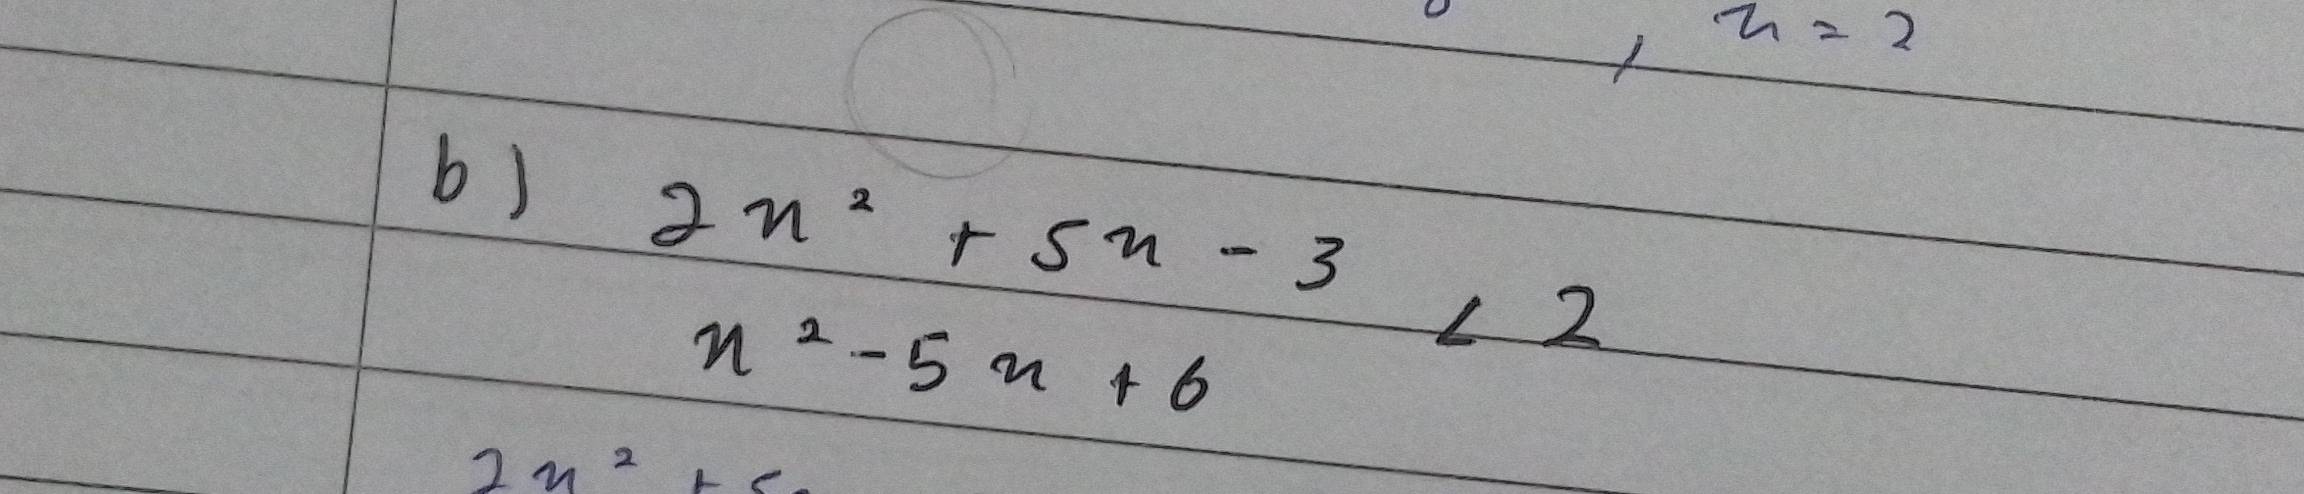 , x = 2
b) 2x² + 5x - 3
x² - 5x + 6
< 2
2x² + 5